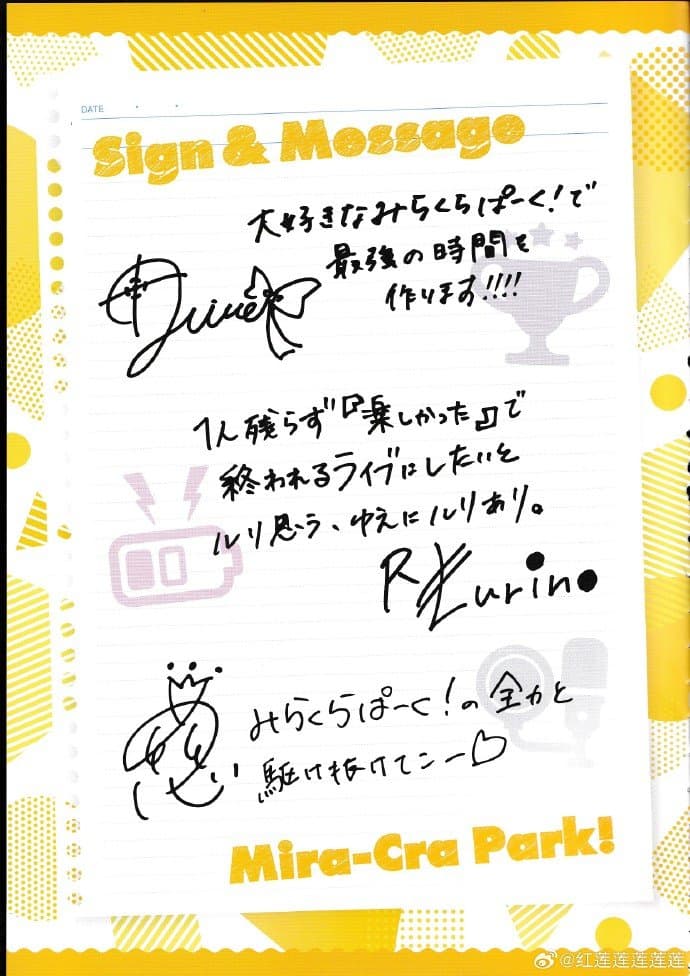 DATE
Sign & Message
大好きなみらくらぱーく!で
最強の時間を
作ります!!!!
1人残らず『楽しかった』で
終われるライブにしたいと
ルリ思う、ゆえにルリあり。
R Kurino
みらくらぱーく!の全力と
駆け抜けてこー♡
Mira-Cra Park!
@红莲莲莲莲莲